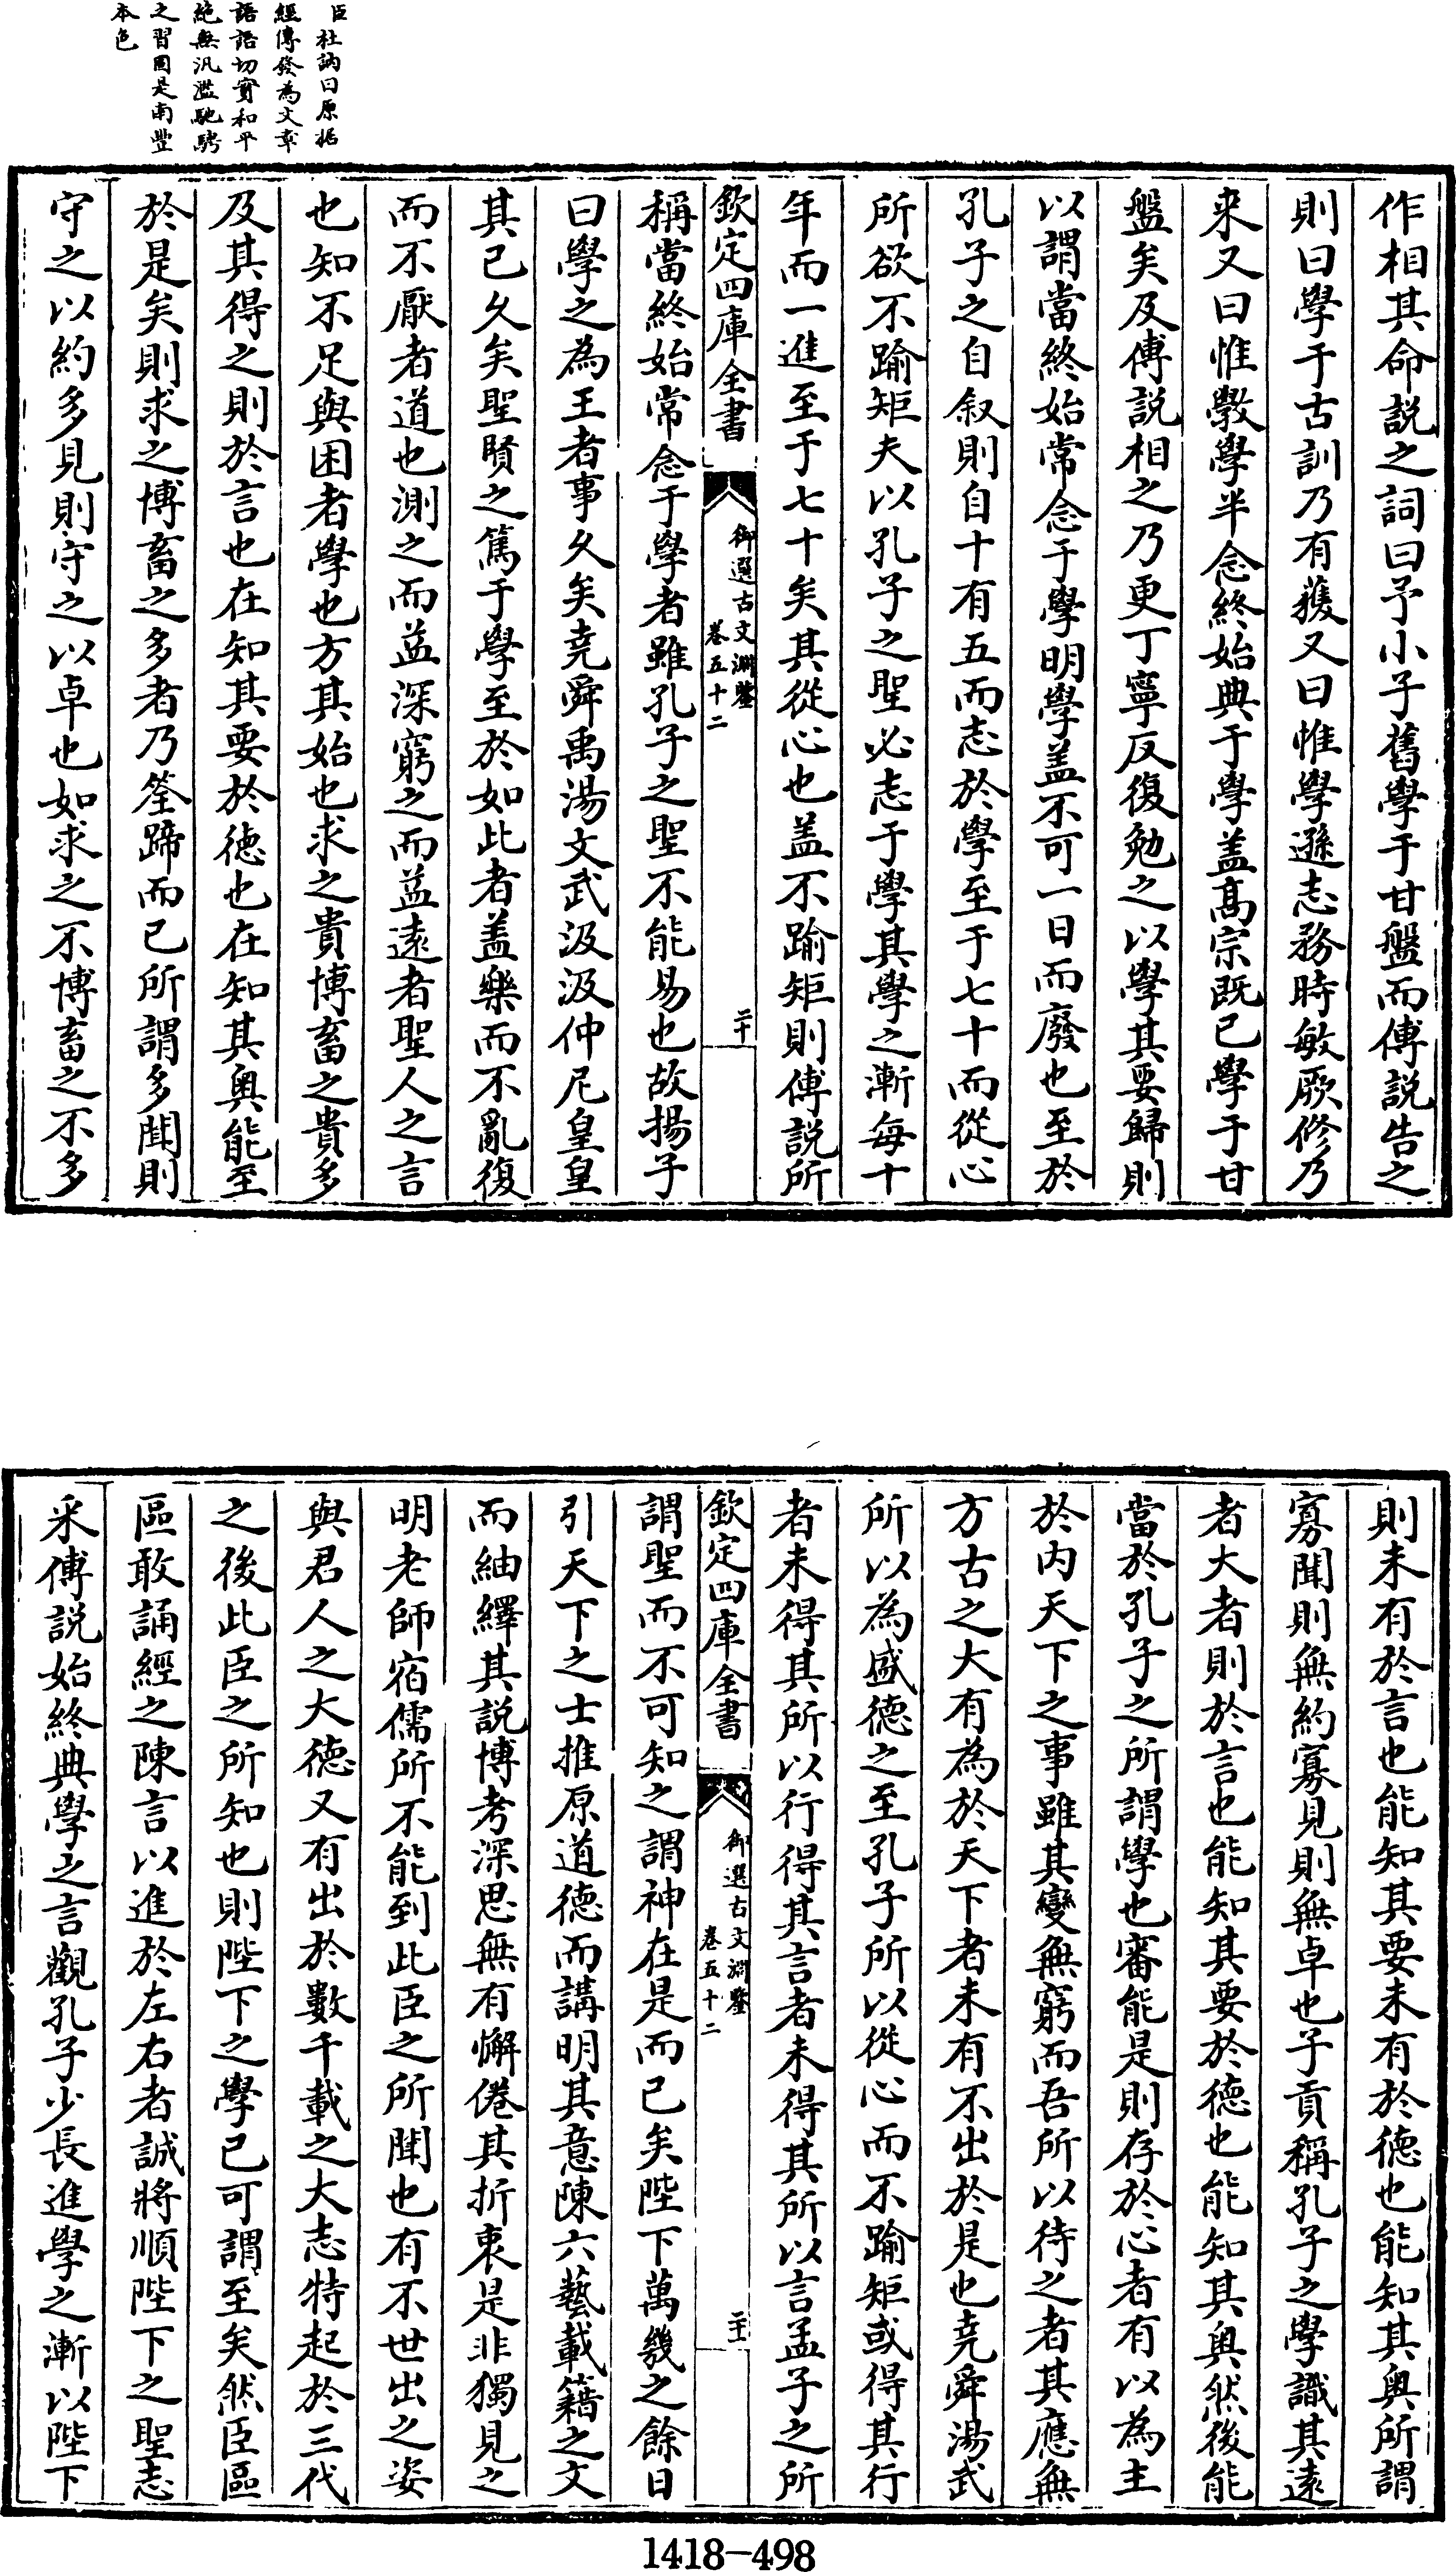 臣杜訥曰原據
經傳發為文章
語語切實和平
絕無汎濫馳騁
之習固是南豐
本色
作相其命説之詞曰予小子舊學于甘盤而傅説告之
則曰學于古訓乃有獲又曰惟學遜志務時敏厥修乃
来又曰惟斆學半念終始典于學盖髙宗既已學于甘
盤矣及傅説相之乃更丁寧反復勉之以學其要歸則
以謂當終始常念于學明學盖不可一日而廢也至於
孔子之自叙則自十有五而志於學至于七十而從心
所欲不踰矩夫以孔子之聖必志于學其學之漸每十
年而一進至于七十矣其從心也盖不踰矩則傅説所
欽定四庫全書
御選古文淵鑒
卷五十二
二十
稱當終始常念于學者雖孔子之聖不能易也故揚子
曰學之為王者事久矣堯舜禹湯文武汲汲仲尼皇皇
其已久矣聖賢之篤于學至於如此者盖樂而不亂復
而不厭者道也測之而益深窮之而益遠者聖人之言
也知不足與困者學也方其始也求之貴博畜之貴多
及其得之則於言也在知其要於徳也在知其奥能至
於是矣則求之博畜之多者乃筌蹄而已所謂多聞則
守之以約多見則守之以卓也如求之不博畜之不多
則未有於言也能知其要未有於徳也能知其奥所謂
寡聞則無約寡見則無卓也子貢稱孔子之學識其遠
者大者則於言也能知其要於徳也能知其奥然後能
當於孔子之所謂學也審能是則存於心者有以為主
於内天下之事雖其變無窮而吾所以待之者其應無
方古之大有為於天下者未有不出於是也堯舜湯武
所以為盛徳之至孔子所以從心而不踰矩或得其行
者未得其所以行得其言者未得其所以言孟子之所
欽定四庫全書
御選古文淵鑒
卷五十二
二十一
謂聖而不可知之謂神在是而已矣陛下萬幾之餘日
引天下之士推原道徳而講明其意陳六藝載籍之文
而紬繹其説博考深思無有懈倦其折衷是非獨見之
明老師宿儒所不能到此臣之所聞也有不世出之姿
與君人之大徳又有出於數千載之大志特起於三代
之後此臣之所知也則陛下之學已可謂至矣然臣區
區敢誦經之陳言以進於左右者誠將順陛下之聖志
采傅説始終典學之言觀孔子少長進學之漸以陛下
1418-498